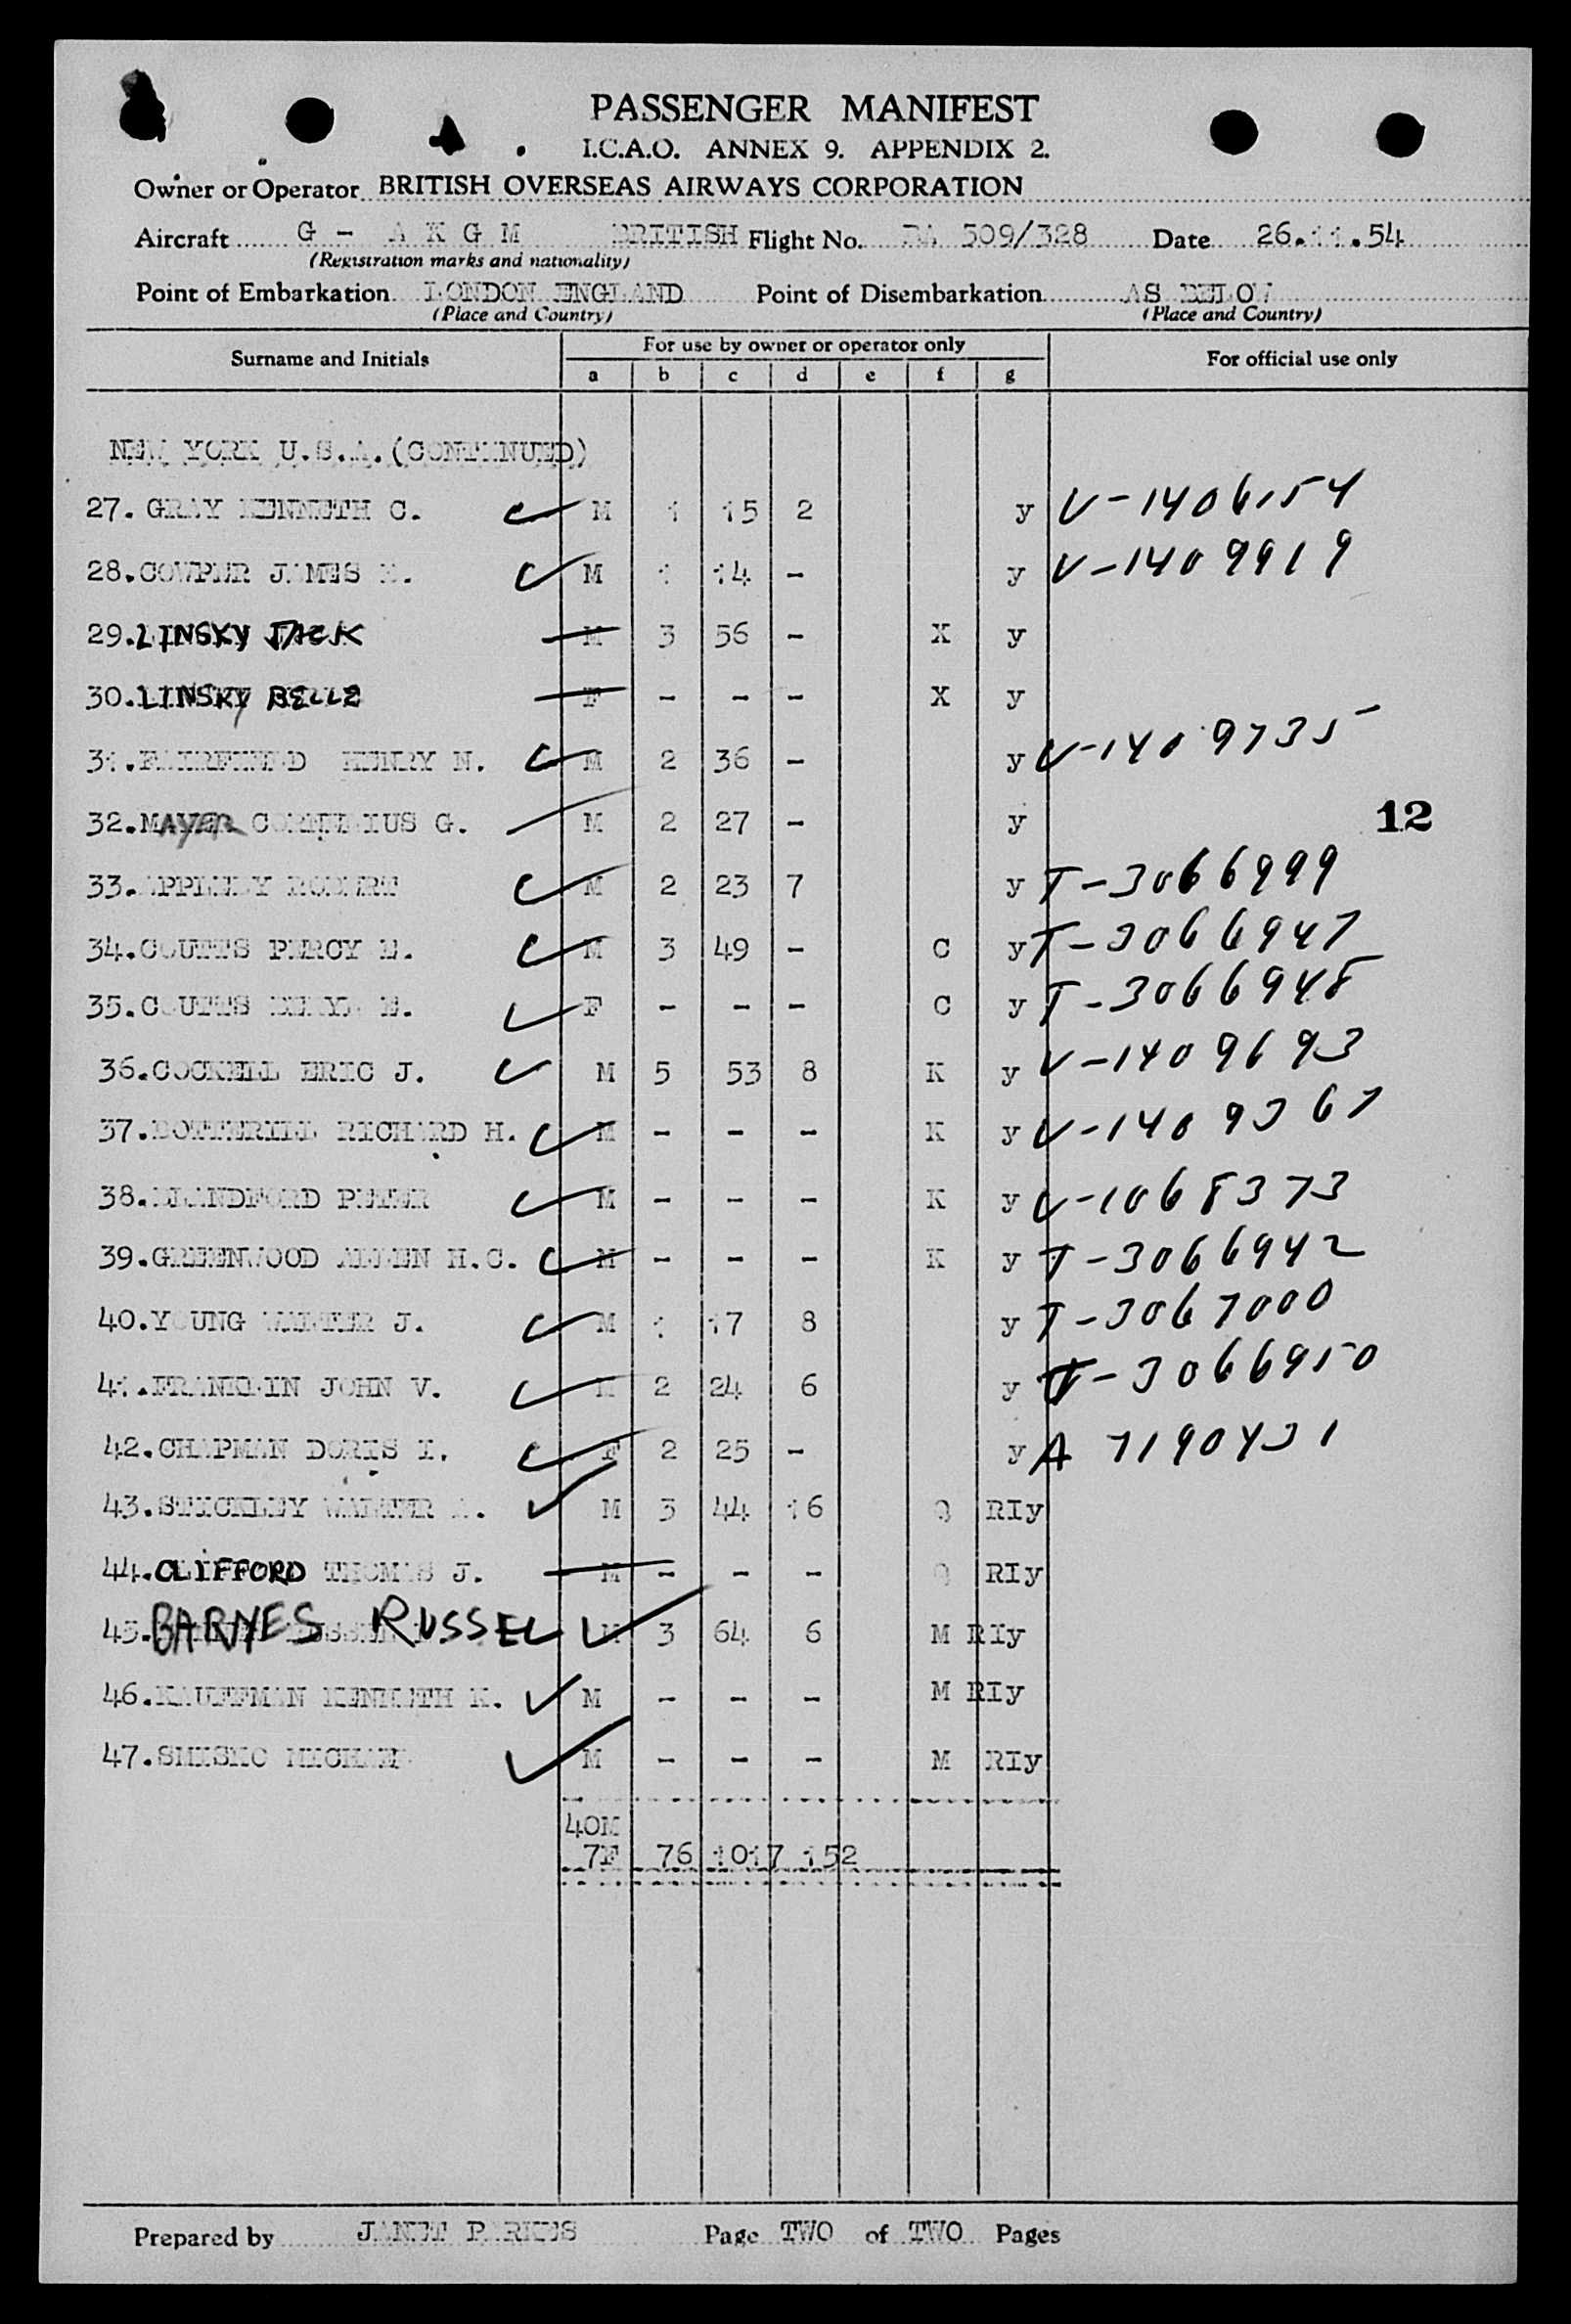 PASSENGER MANIFEST
I.C.A.O. ANNEX 9. APPENDIX 2.
Owner or Operator BRITISH OVERSEAS AIRWAYS CORPORATION
Aircraft G - A K G M BRITISH Flight No. BA 509/328 Date 26.11.54
(Registration marks and nationality)
Point of Embarkation LONDON ENGLAND Point of Disembarkation AS BELOW
(Place and Country) (Place and Country)
Surname and Initials For use by owner or operator only For official use only
a b c d e f g
NEW YORK U.S.A. (CONTINUED)
27. GRAY KENNETH C. M 1 15 2 y V-1406154
28. COWPER JAMES M 1 14 - y V-1409919
29. LINSKY JACK M 3 56 - X y
30. LINSKY BELLE F - - - X y
31. HENRY N. M 2 36 - y V-1409735
32. MAYER CORNELIUS G. M 2 27 - y
12
33. APPLEBY ROBERT M 2 23 7 y T-3066999
34. COUTTS PERCY E. M 3 49 - C y T-3066947
35. COUTTS BERYL E. F - - - C y T-3066948
36. COCKELL ERIC J. M 5 53 8 K y V-1409693
37. BOTTERILL RICHARD H. M - - - K y V-1409367
38. BLANDFORD PETER M - - - K y V-1068373
39. GREENWOOD ALLEN H.C. M - - - K y T-3066942
40. YOUNG WALTER J. M 1 17 8 y T-3067000
41. FRANKLIN JOHN V. M 2 24 6 y T-3066950
42. CHAPMAN DORIS I. F 2 25 - y A 7190431
43. STICKLEY WALTER A. M 3 44 16 Q RIy
44. CLIFFORD THOMAS J. M - - - Q RIy
45. BARNES RUSSEL M 3 64 6 M RIy
46. KAUFFMAN KENNETH K. M - - - M RIy
47. SMISKO MICHAEL M - - - M RIy
40M
7F 76 1017 152
Prepared by JANET PARKES Page TWO of TWO Pages